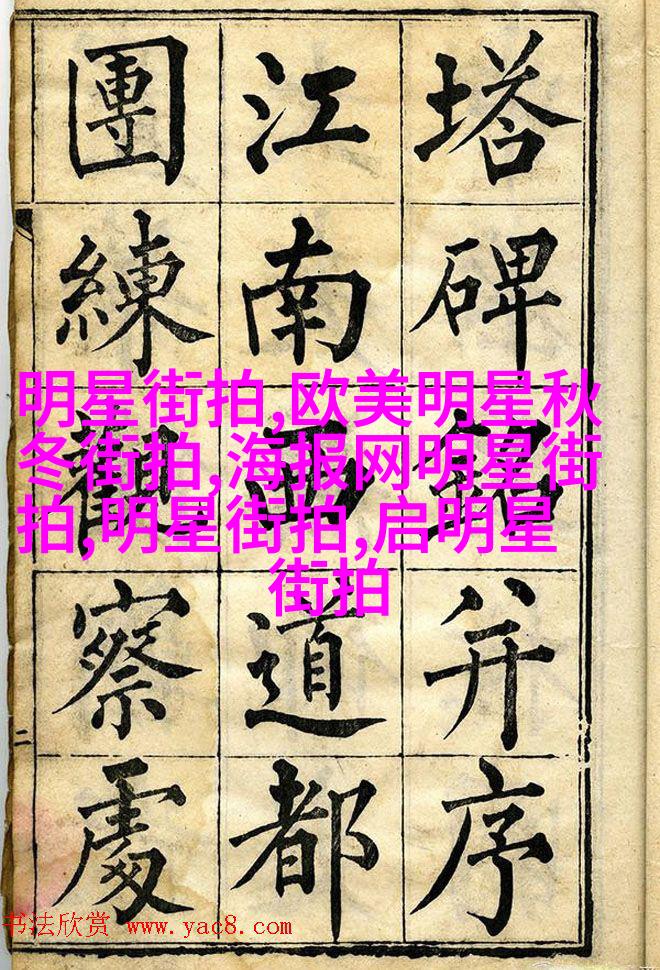 塔碑銘并序
江南西道都
團練觀察處
二
明星街拍,欧美明星秋
冬街拍,海报网明星街
拍,明星街拍,启明星
街拍
书法欣赏 www.yac8.com